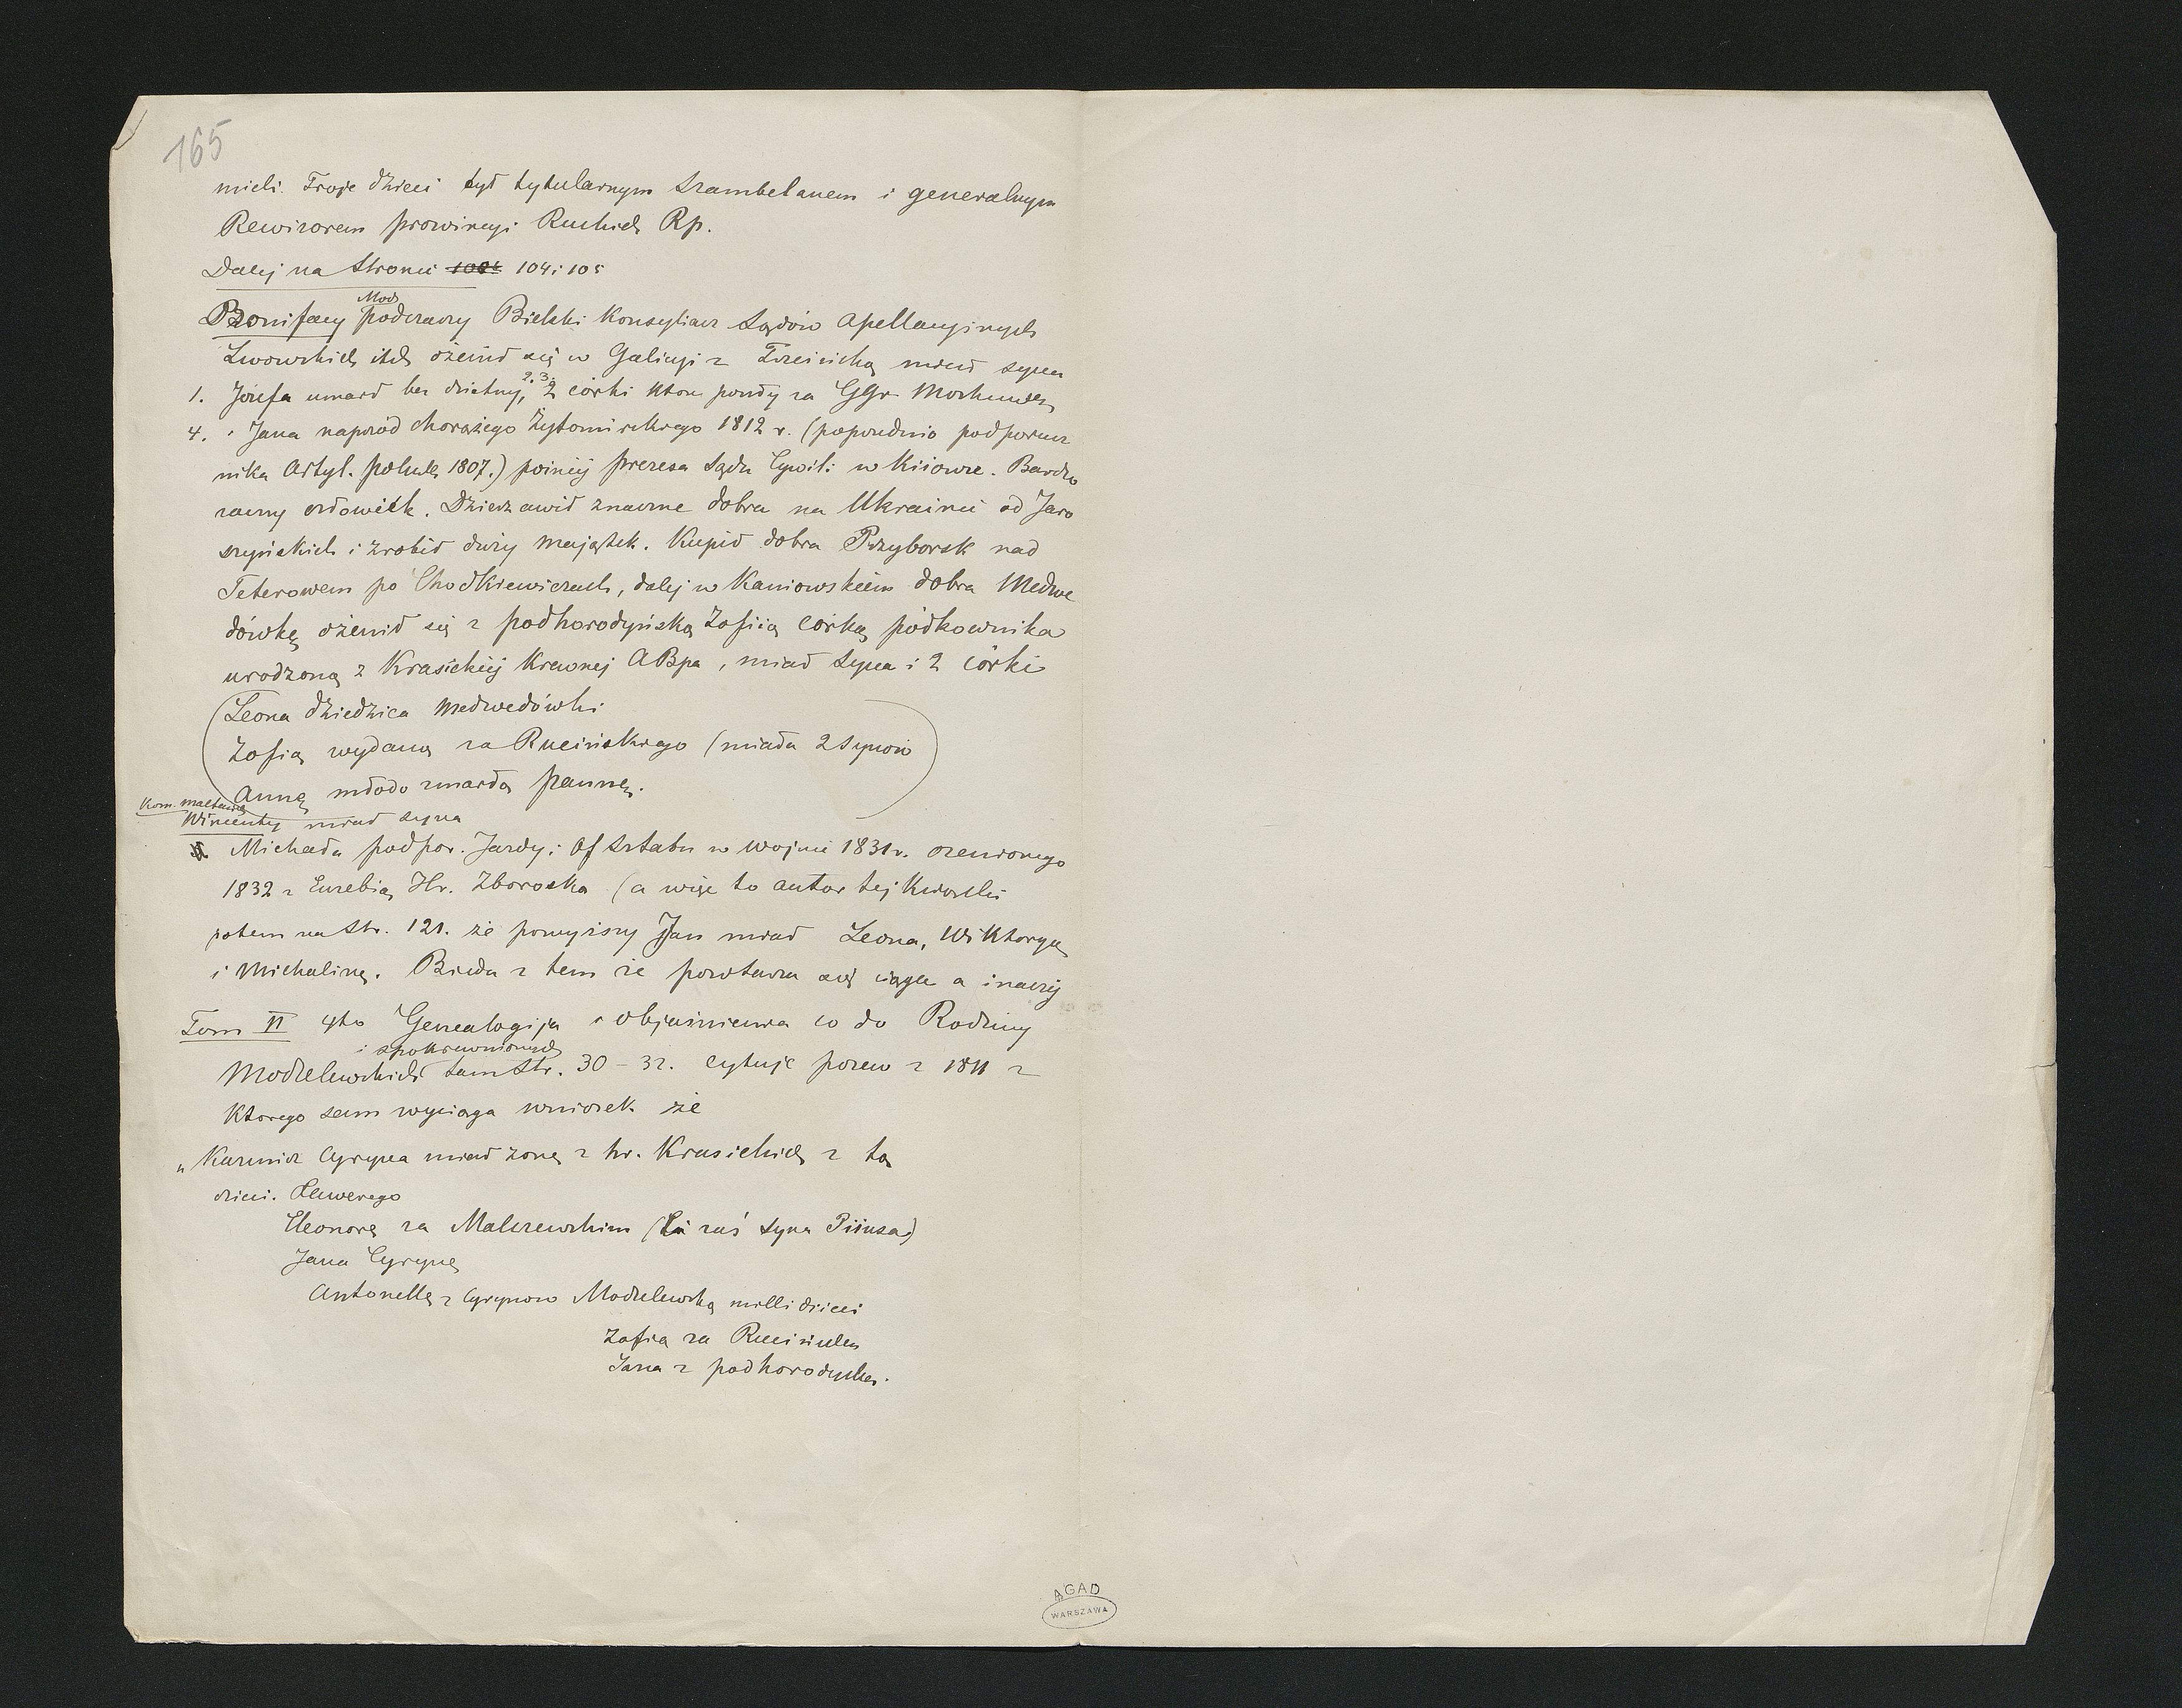 165
mieli. Troje dzieci był tytularnym szambelanem i generalnym
Rewizorem prowincyi Ruskich Rp.
Dalej na stronie 104 i 105
Mod
Bonifacy podczaszy Bielski Konsyliarz Sądów Apellacyjnych
Lwowskich itd. ożenił się w Galicyi z miał syna
1. Józefa umarł bez dzietny, 2. 3. 2 córki które poszły za
4. i Jana naprzód Chorążego Żytomirskiego 1812 r. (poprzednio podporucz
nika Artyl. polsk. 1807.) później prezesa Sądu Cywil: w Kijowie. Bardzo
zacny człowiek. Dzierżawił znaczne dobra na Ukrainie od Jaro
szyńskich i zrobił duży majątek. Kupił dobra Przyborsk nad
Teterowem po Chodkiewiczach, dalej w Kaniowskiem dobra Medwe
dówkę ożenił się z podhorodyńską Zofiią córką półkownika
urodzoną z Krasickiej Krewnej ABpa, miał syna i 2 córki
(Leona dziedzica Medwedówki
Zofią wydaną za Rucińskiego (miała 2 synów
Annę młodo zmarłą pannę.)
Kom. maltański
Wincenty miał syna
Michała podpor. Jazdy i Of Sztabu w wojnie 1831 r. ożenionego
1832 z Euzebią Hr. Zboroską (a więc to autor tej
potem na str. 121. że powyższy Jan miał Leona, Wiktoryę
i Michalinę. Bieda z tem że powtarza się ciągle a inaczej
Tom II 4to Genealogija i objaśnienia co do Rodziny
i spokrewnionych
Modzelewskich tam str. 30 – 32. cytuje pozew z 1811 z
którego sam wyciąga wniosek że
„Kazmirz Cyryna miał żonę z hr. Krasickich z tą
dzieci. Xawerego
Eleonorę za Malczewskim (Ta zaś syna Piiusa)
Jana Cyrynę
Antonellę z Cyrynów Modzelewską mieli dzieci
Zofia za Rucińskim
Jana z podhorodyńską.
AGAD
WARSZAWA